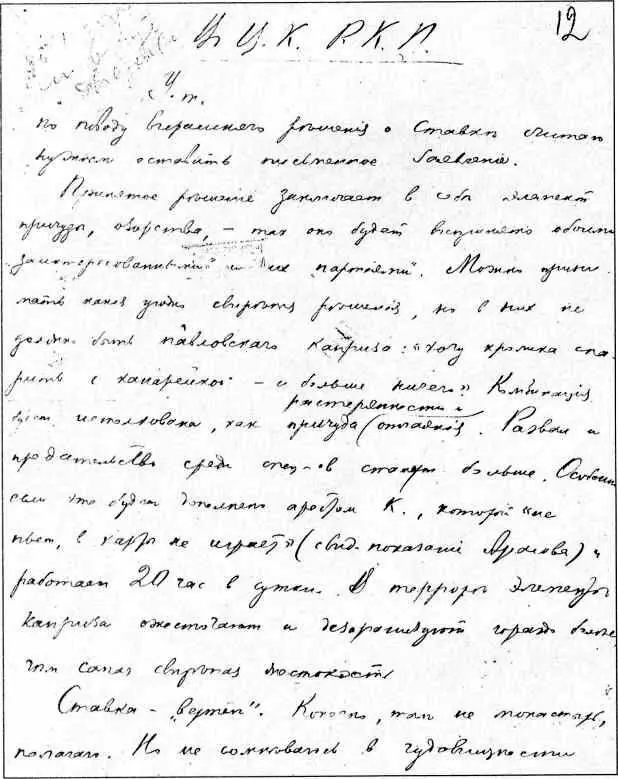 12
В Ц.К. Р.К.П.
У. т.
По поводу вчерашнего решенія о Ставке считаю
нужным оставить письменное заявленіе.
Принятое решение заключает в себе элемент
причуды, озорства, – так оно будет воспринято обоими
„заинтересованными" и их „партиями". Можно прини
мать какія угодно свирепыя решенія, но в них не
должно быть павловскаго каприза: „хочу кролика спа
рить с канарейкой – и больше ничего". Комбинація
будет истолкована, как причуда (отчаянія.
растерянности и
Развал и
предательство среди спец-ов станут больше. Особенно
если это будет дополнено арестом К., который „не
пьет, в карты не играет" (свид. показаніе Аралова) и
работает 20 час в сутки. В терроре элементы
каприза ожесточают и деморализуют гораздо больше
чем самая свирепая жестокость
Ставка – „вертеп". Конечно, там не монастырь,
полагаю. Но не сомневаюсь в чудовищности